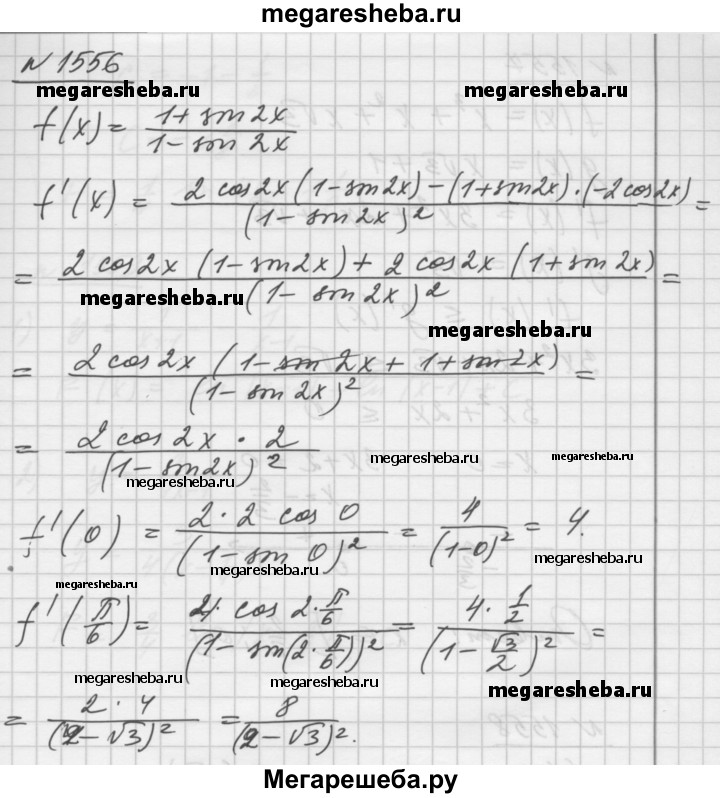 megaresheba.ru
N 1556
megaresheba.ru megaresheba.ru
f(x) = (1 + sin 2x) / (1 - sin 2x)
f'(x) = (2 cos 2x (1 - sin 2x) - (1 + sin 2x) · (-2 cos 2x)) / (1 - sin 2x)² =
= (2 cos 2x (1 - sin 2x) + 2 cos 2x (1 + sin 2x)) / (1 - sin 2x)² =
megaresheba.ru
megaresheba.ru
= (2 cos 2x (1 - sin 2x + 1 + sin 2x)) / (1 - sin 2x)² =
= (2 cos 2x · 2) / (1 - sin 2x)²
megaresheba.ru megaresheba.ru
megaresheba.ru
f'(0) = (2 · 2 cos 0) / (1 - sin 0)² = 4 / (1-0)² = 4.
megaresheba.ru
megaresheba.ru
megaresheba.ru
f'(π/6) = (4 cos 2 · π/6) / (1 - sin(2 · π/6))² = (4 · 1/2) / (1 - √3/2)² =
megaresheba.ru megaresheba.ru
megaresheba.ru
= (2 · 4) / (2 - √3)² = 8 / (2 - √3)².
Мегарешеба.ру